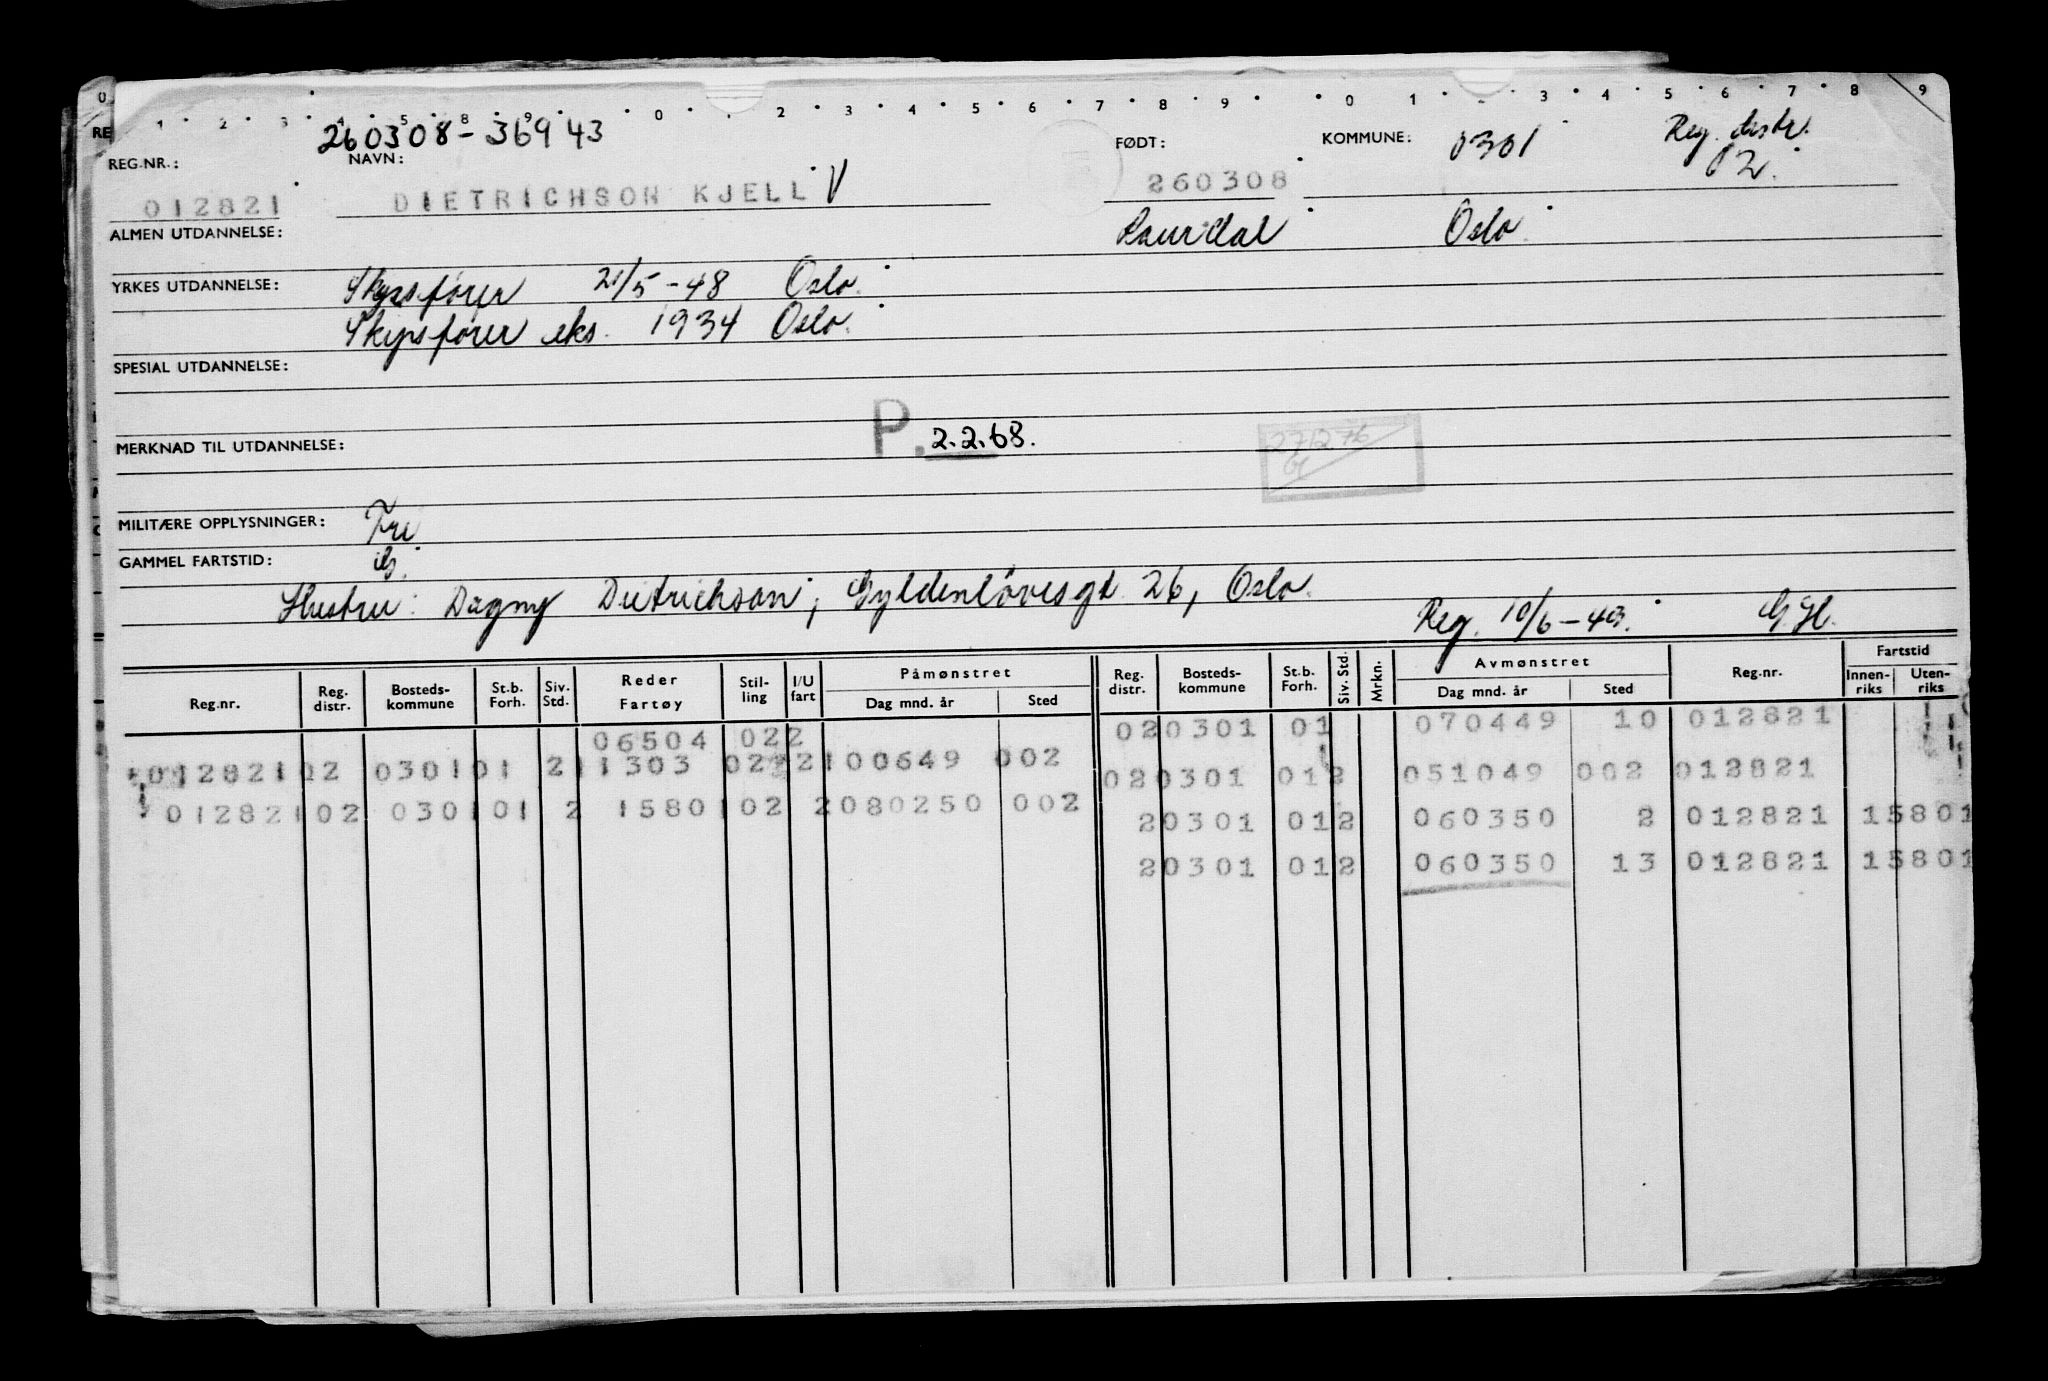 0 1 2 3 4 5 8 9 0 . 2 3 4 5 6 7 8 9 0 1 3 4 5 6 7 8 9
RE
260308-36943
REG.NR.: NAVN: FØDT: KOMMUNE: 0301 Reg. distr. 02.
012821 DIETRICHSON KJELL V 260308
ALMEN UTDANNELSE: Oslo.
YRKES UTDANNELSE: Skipsfører 21/5-48 Oslo.
Skipsfører eks. 1934 Oslo.
SPESIAL UTDANNELSE:
MERKNAD TIL UTDANNELSE: P. 2.2.68. 271276
MILITÆRE OPPLYSNINGER: Fri
GAMMEL FARTSTID:
Hustru: Dagny Dietrichson, Gyldenløvesgt. 26, Oslo.
Reg. 10/6-49. G.H.
Reg.nr. Reg. distr. Bosteds-kommune St.b. Forh. Siv. Std. Reder Fartøy Stil-ling I/U fart Påmønstret Dag mnd. år Sted Reg. distr. Bosteds-kommune St.b. Forh. Siv. Std. Mrkn. Avmønstret Dag mnd. år Sted Reg.nr. Fartstid Innen-riks Uten-riks
06504 022 020301 01 070449 10 012821
012821 02 0301 01 2 11303 022 2 100649 002 020301 012 051049 002 012821
012821 02 0301 01 2 15801 02 2 080250 002 20301 012 060350 2 012821 15801
20301 012 060350 13 012821 15801